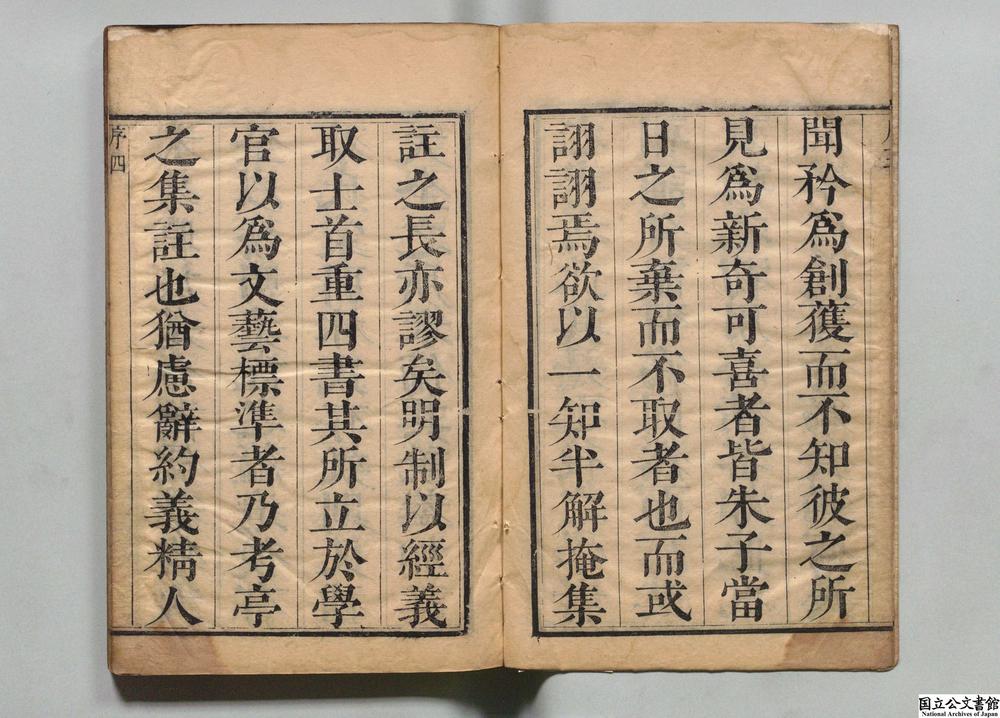 聞矜爲創獲而不知彼之所
見爲新奇可喜者皆朱子當
日之所棄而不取者也而或
詡詡焉欲以一知半解掩集
註之長亦謬矣明制以經義
取士首重四書其所立於學
官以爲文藝標準者乃考亭
之集註也猶慮辭約義精人
序四
国立公文書館
National Archives of Japan